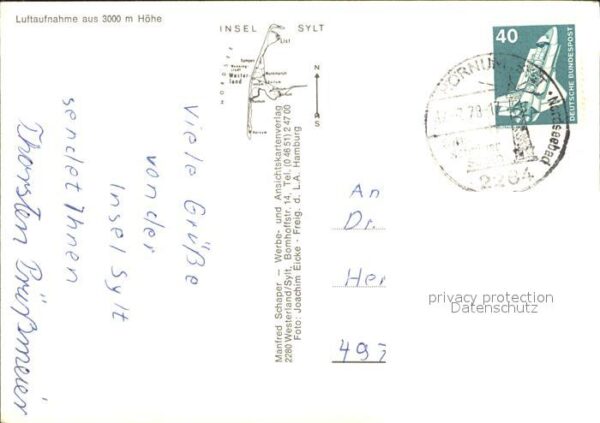 Luftaufnahme aus 3000 m Höhe
INSEL SYLT
List
Kampen
Wester-
land
NORDSEE
Hörnum
N
S
Viele Grüße
von der
Insel Sylt
sendet Ihnen
Thorsten
Manfred Schaper – Werbe- und Ansichtskartenverlag
2280 Westerland/Sylt, Bomhoffstr. 14, Tel. (0 46 51) 2 47 00
Foto: Joachim Eicke - Freig. d. L.A. Hamburg
40
DEUTSCHE BUNDESPOST
HÖRNUM
Nordseebad
2284
An
Dr.
Her
493
privacy protection
Datenschutz